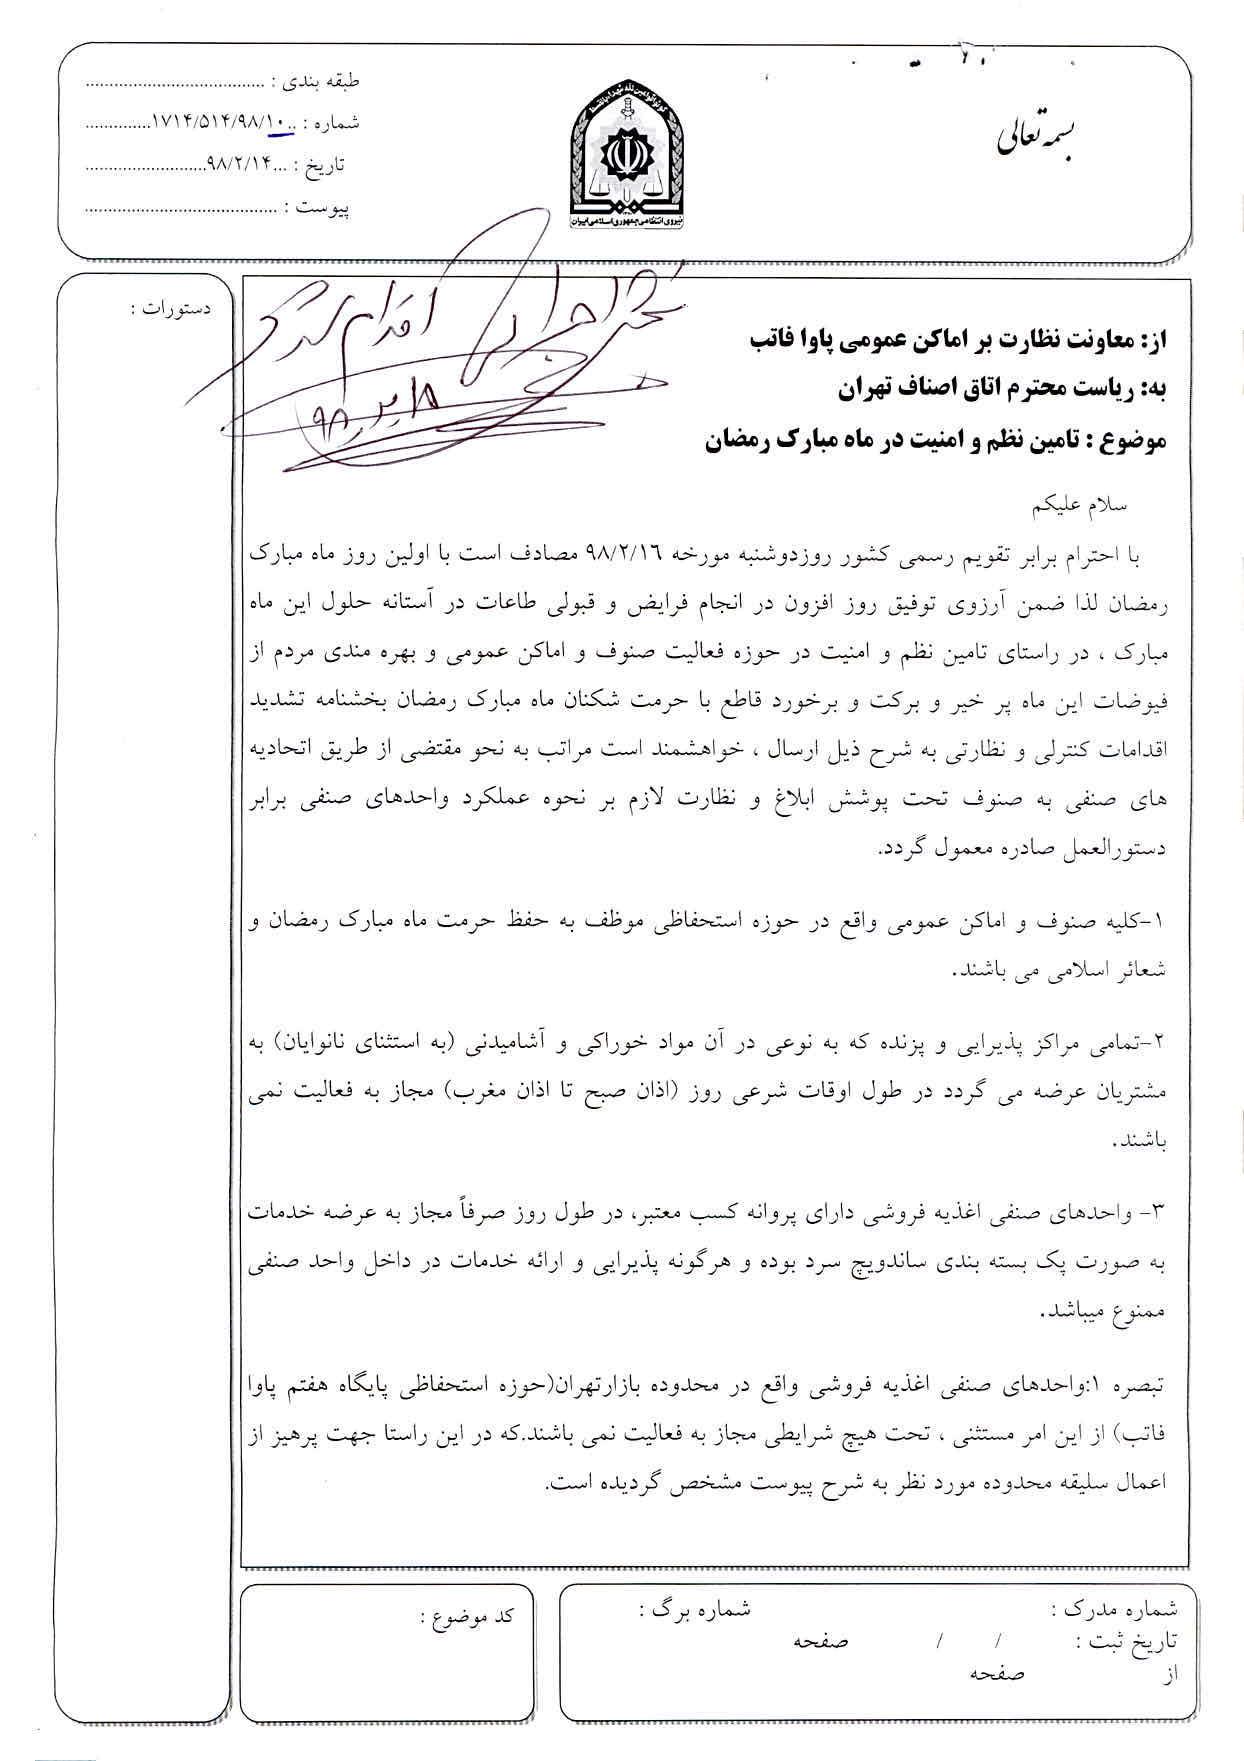 بسمه تعالی
طبقه بندی : ......................................
شماره : ..۱۷۱۴/۵۱۴/۹۸/۱۰..............
تاریخ : ...۹۸/۲/۱۴..........................
پیوست : .........................................
نیروی انتظامی جمهوری اسلامی ایران
دستورات :
بخش اجرایی اقدام گردد
از: معاونت نظارت بر اماکن عمومی پاوا فاتب
به: ریاست محترم اتاق اصناف تهران
موضوع : تامین نظم و امنیت در ماه مبارک رمضان
سلام علیکم
با احترام برابر تقویم رسمی کشور روزدوشنبه مورخه ۹۸/۲/۱۶ مصادف است با اولین روز ماه مبارک
رمضان لذا ضمن آرزوی توفیق روز افزون در انجام فرایض و قبولی طاعات در آستانه حلول این ماه
مبارک ، در راستای تامین نظم و امنیت در حوزه فعالیت صنوف و اماکن عمومی و بهره مندی مردم از
فیوضات این ماه پر خیر و برکت و برخورد قاطع با حرمت شکنان ماه مبارک رمضان بخشنامه تشدید
اقدامات کنترلی و نظارتی به شرح ذیل ارسال ، خواهشمند است مراتب به نحو مقتضی از طریق اتحادیه
های صنفی به صنوف تحت پوشش ابلاغ و نظارت لازم بر نحوه عملکرد واحدهای صنفی برابر
دستورالعمل صادره معمول گردد.
۱-کلیه صنوف و اماکن عمومی واقع در حوزه استحفاظی موظف به حفظ حرمت ماه مبارک رمضان و
شعائر اسلامی می باشند.
۲-تمامی مراکز پذیرایی و پزنده که به نوعی در آن مواد خوراکی و آشامیدنی (به استثنای نانوایان) به
مشتریان عرضه می گردد در طول اوقات شرعی روز (اذان صبح تا اذان مغرب) مجاز به فعالیت نمی
باشند.
۳- واحدهای صنفی اغذیه فروشی دارای پروانه کسب معتبر، در طول روز صرفاً مجاز به عرضه خدمات
به صورت پک بسته بندی ساندویچ سرد بوده و هرگونه پذیرایی و ارائه خدمات در داخل واحد صنفی
ممنوع میباشد.
تبصره ۱:واحدهای صنفی اغذیه فروشی واقع در محدوده بازارتهران(حوزه استحفاظی پایگاه هفتم پاوا
فاتب) از این امر مستثنی ، تحت هیچ شرایطی مجاز به فعالیت نمی باشند.که در این راستا جهت پرهیز از
اعمال سلیقه محدوده مورد نظر به شرح پیوست مشخص گردیده است.
شماره مدرک : شماره برگ :
تاریخ ثبت : / / صفحه
از صفحه
کد موضوع :